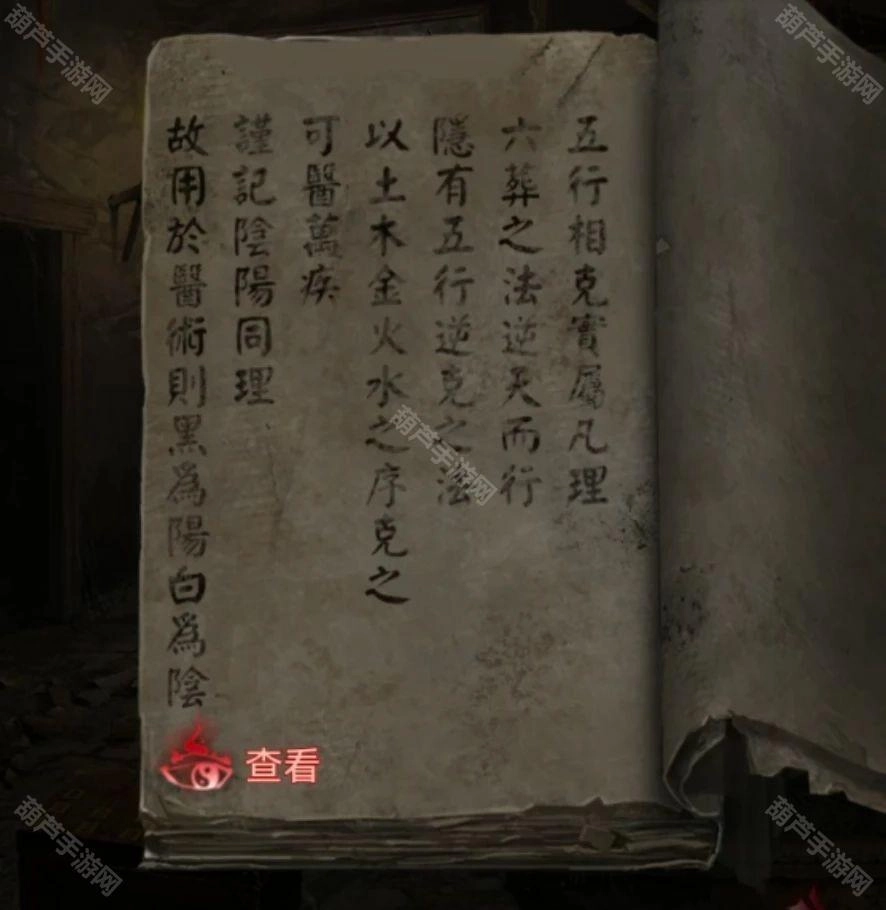 五行相克實屬凡理
六葬之法逆天而行
隱有五行逆克之法
以土木金火水之序克之
可醫萬疾
謹記陰陽同理
故用於醫術則黑為陽白為陰
查看
葫芦手游网
葫芦手游网
葫芦手游网
葫芦手游网
葫芦手游网